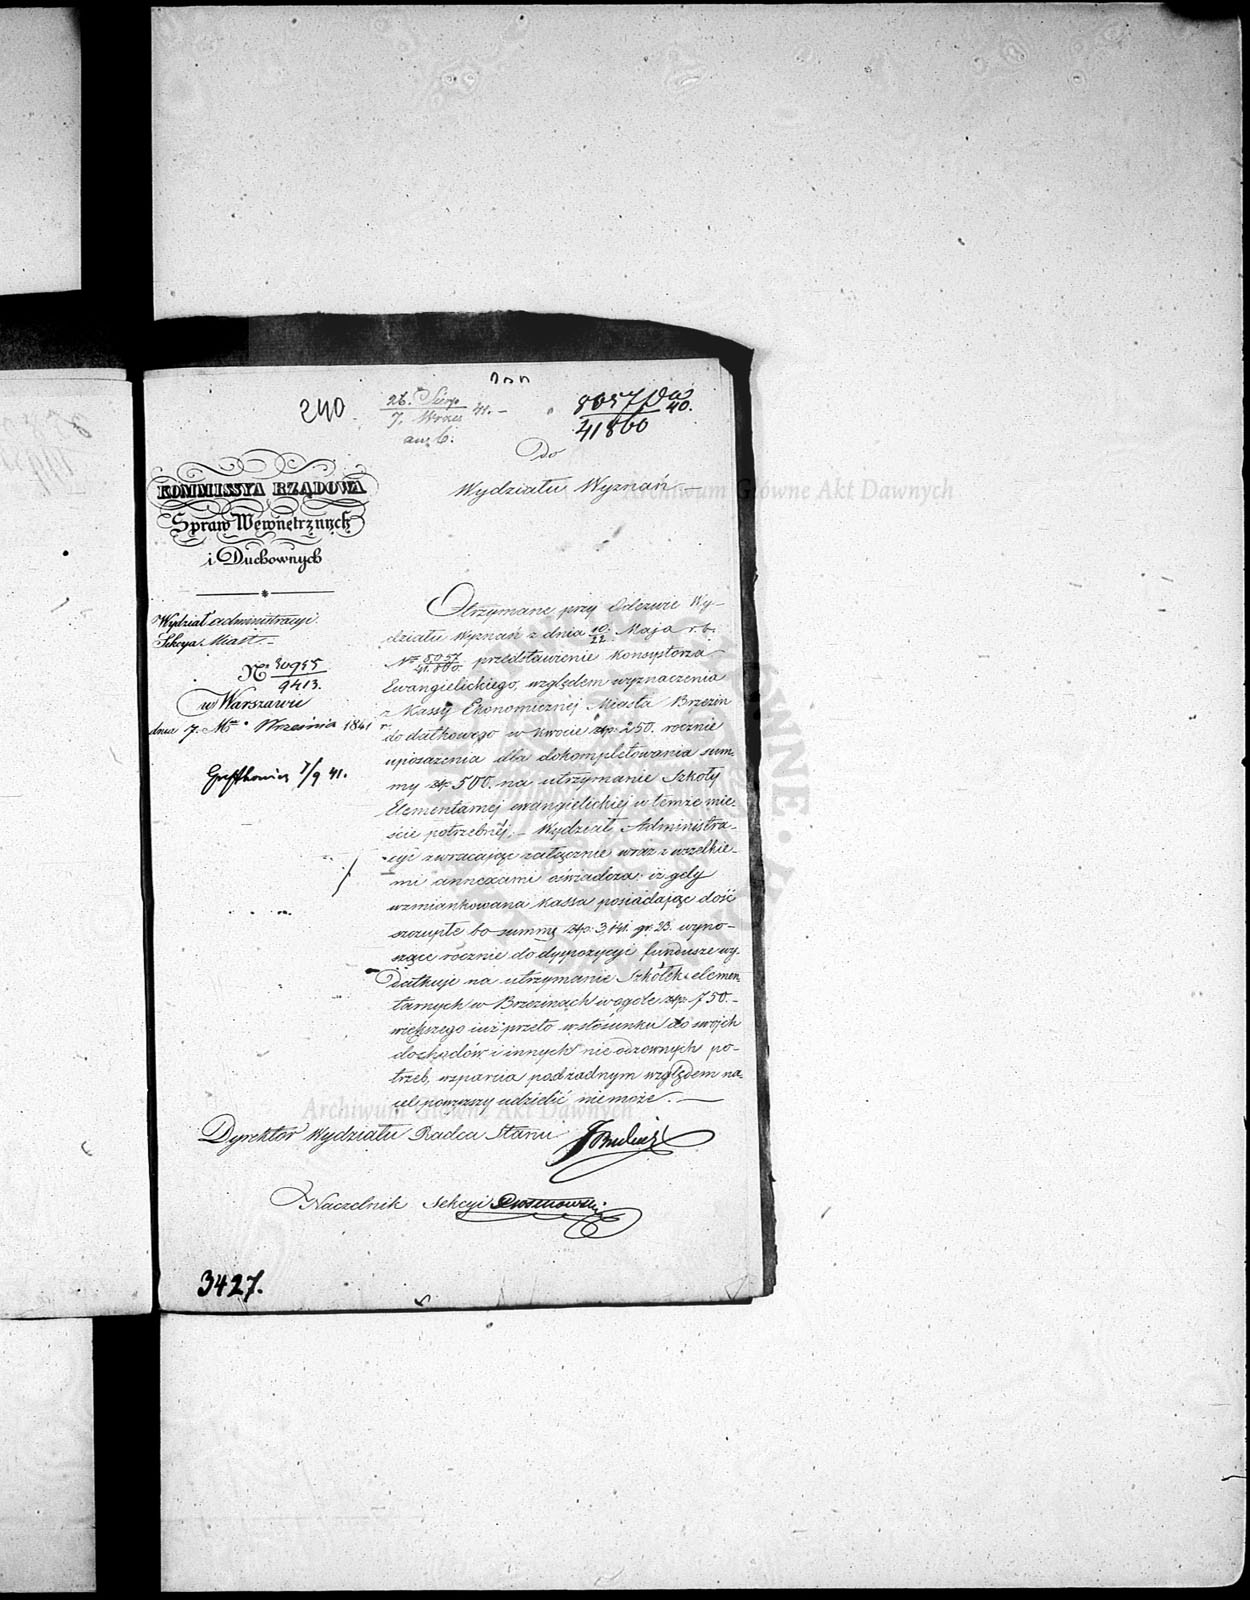 240.
26. Sierp
7. Wrześ 41.
8057
41860
40.
Do
Wydziału Wyznań.
KOMMISSYA RZĄDOWA
Spraw Wewnętrznych
i Duchownych
Wydział administracyi
Sekcya Miast
No 30955
9413.
w Warszawie
dnia 7. Września 1841 r.
7/9 41.
Otrzymane przy Odezwie Wy-
działu Wyznań z dnia 10/22 Maja r. b.
No 8057/41.860. przedstawienie Konsystorza
Ewangielickiego, względem wyznaczenia
z Kassy Ekonomicznej Miasta Brzezin
dodatkowego w kwocie złp. 250. rocznie
uposażenia dla dokompletowania sum-
my złp. 500. na utrzymanie Szkoły
Elementarnej ewangielickiej w temże mie-
ście potrzebnej, Wydział Administra-
cyi zwracając załącznie wraz z wszelkie-
mi annexami oświadcza: iż gdy
wzmiankowana kassa posiadając dość
szczupłe bo summę złp. 3,141. gr. 23. wyno-
szące rocznie do dyspozycyi fundusze wy-
datkuje na utrzymanie Szkółek elemen-
tarnych w Brzezinach wogóle złp. 750.
większego już przeto w stosunku do swojch
dochodów i innych nieodzownych po-
trzeb, wsparcia pod żadnym względem na
cel powyższy udzielić nie może.
Dyrektor Wydziału Radca Stanu
Naczelnik Sekcyi
3427.
Archiwum Główne Akt Dawnych
Archiwum Główne Akt Dawnych